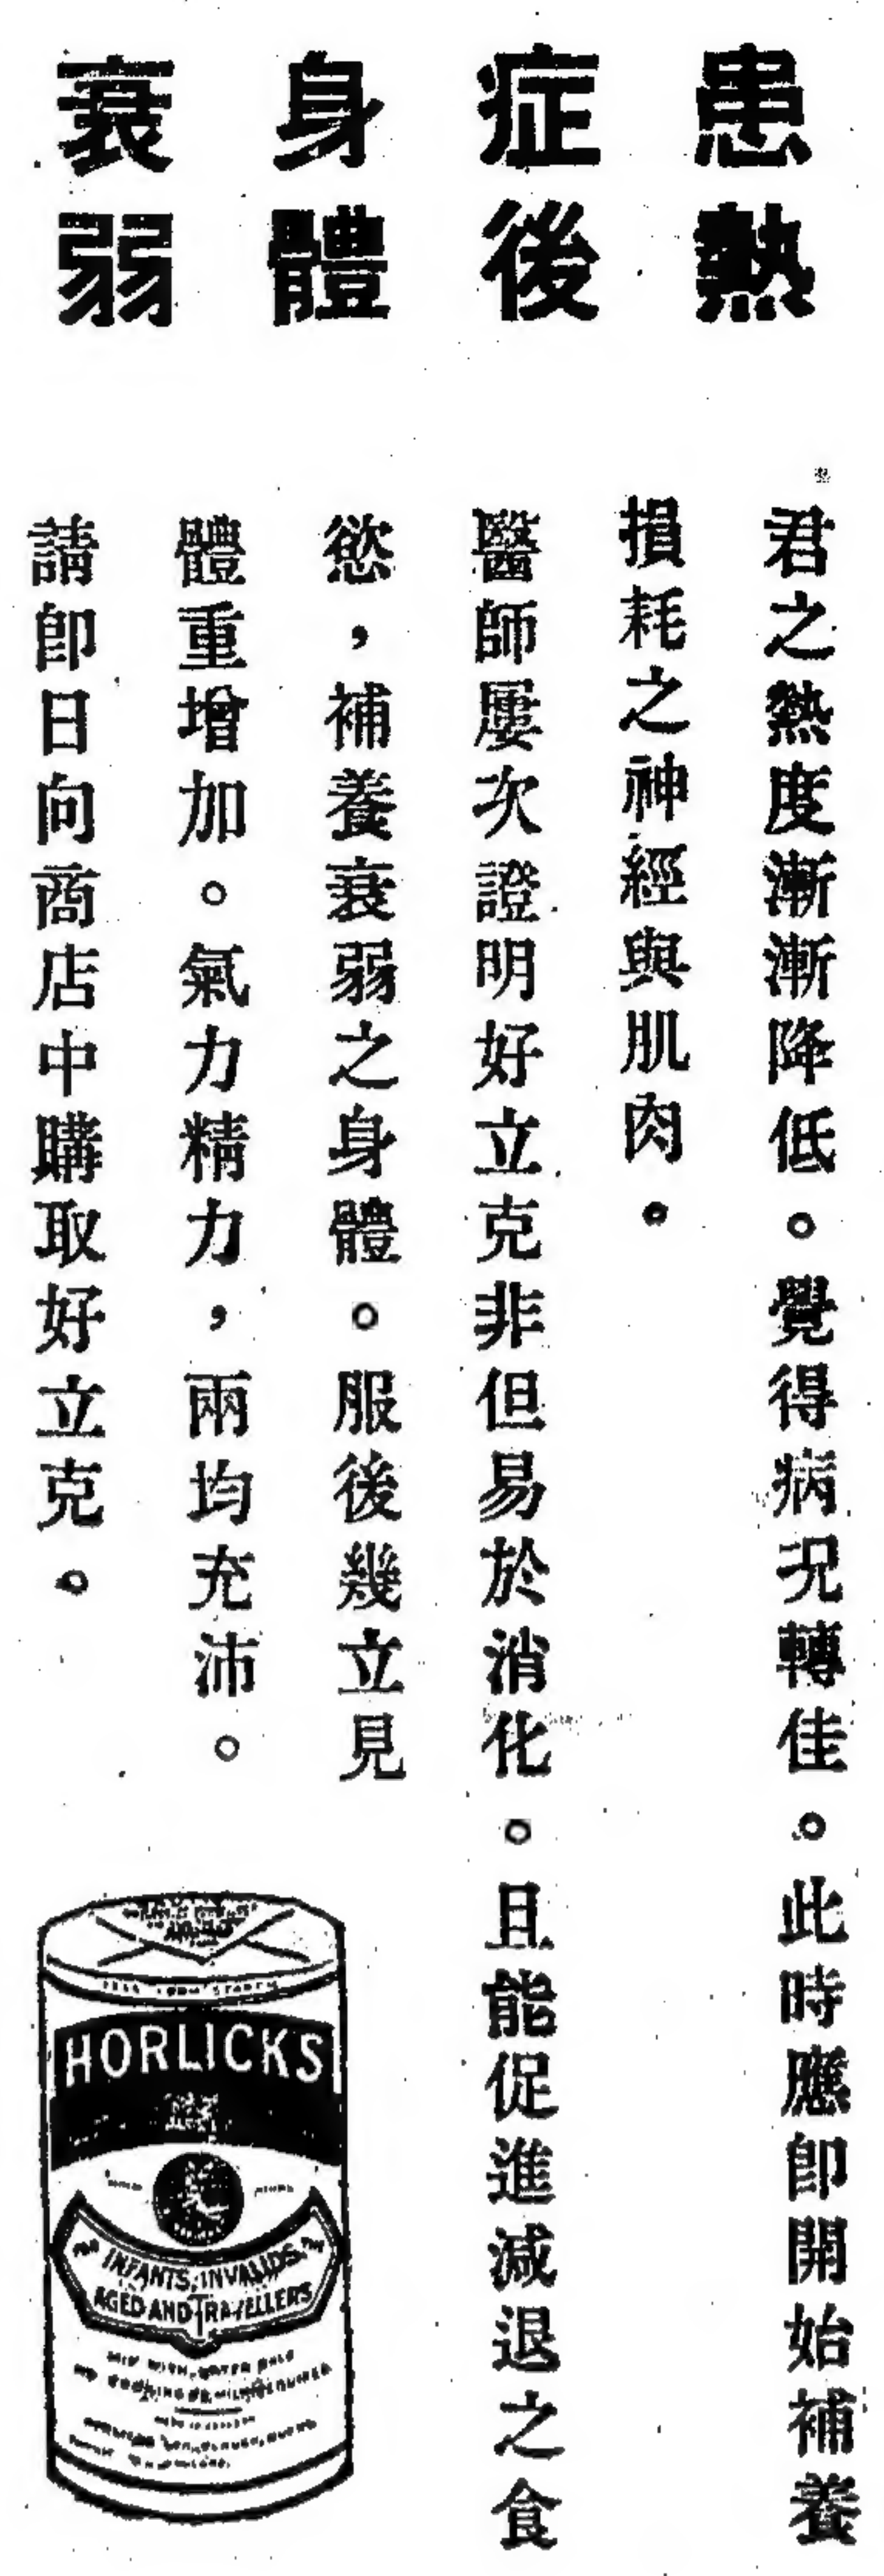 患熱
症後
身體
衰弱
君之熱度漸漸降低。覺得病況轉佳。此時應即開始補養
損耗之神經與肌肉。
醫師屢次證明好立克非但易於消化。且能促進減退之食
慾，補養衰弱之身體。服後幾立見
體重增加。氣力精力，兩均充沛。
請即日向商店中購取好立克。
HORLICKS
FOR INFANTS, INVALIDS, THE
AGED AND TRAVELLERS